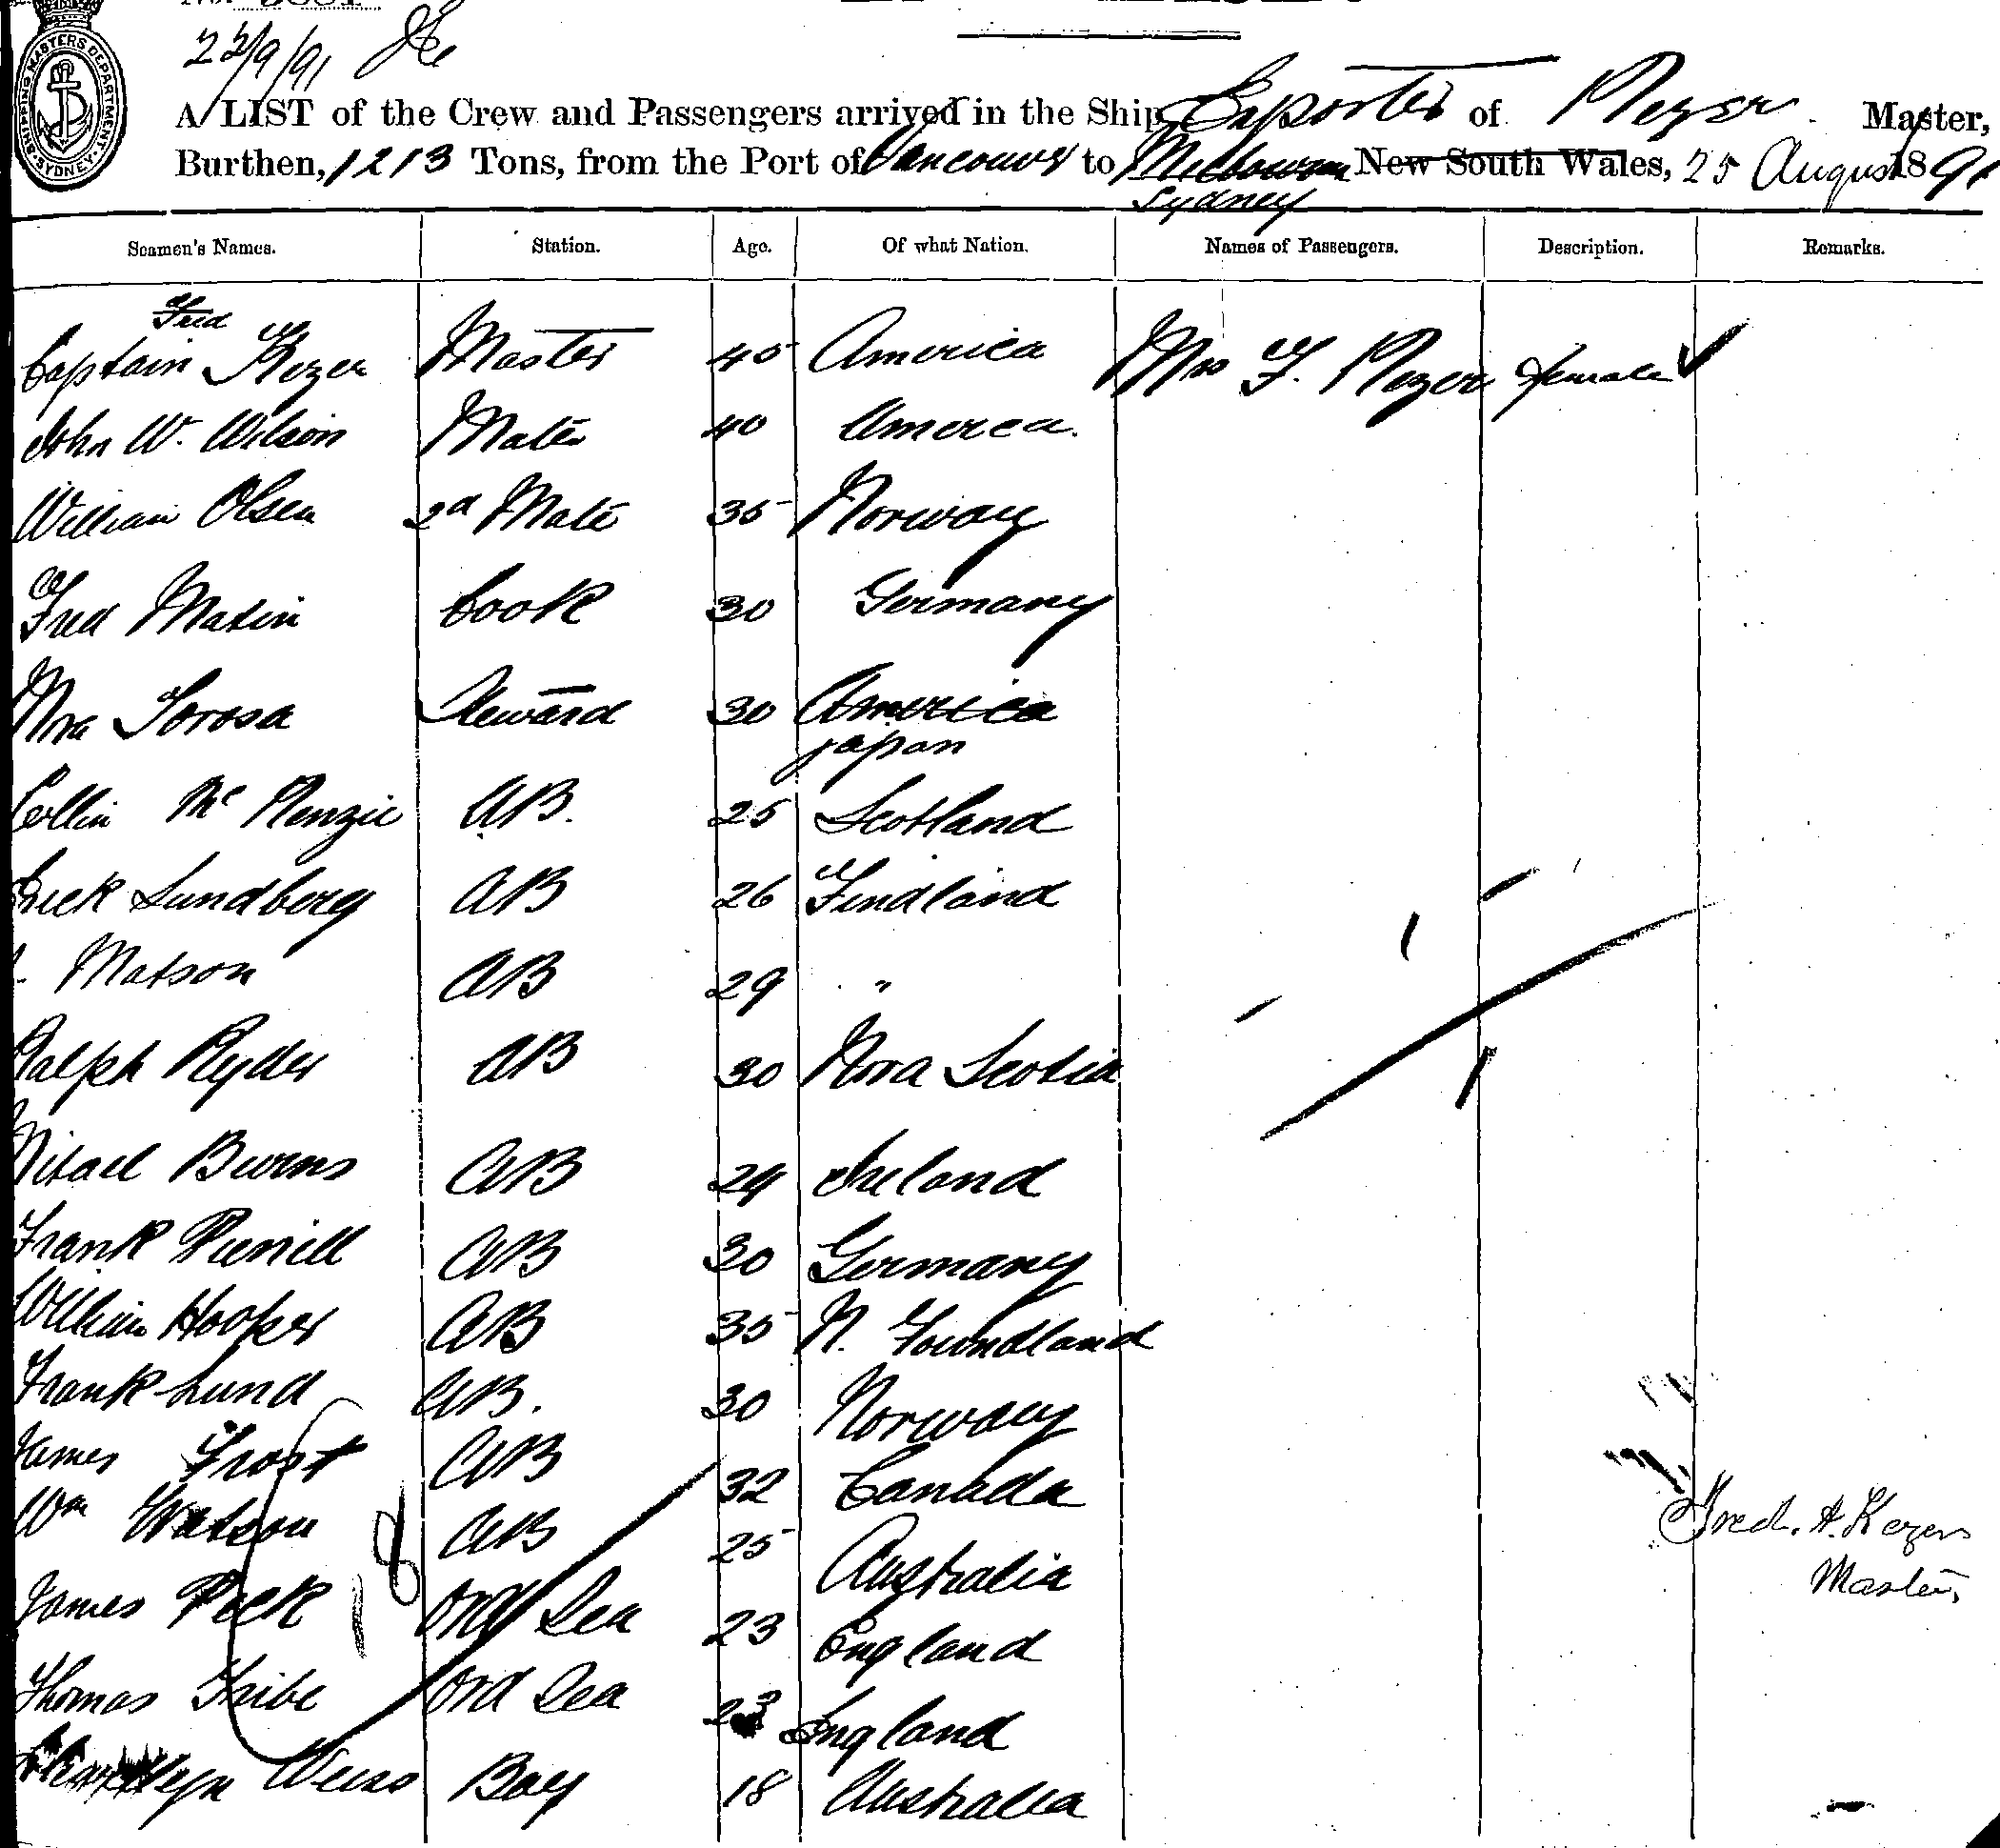 23/9/91
SHIPPING MASTERS DEPARTMENT. SYDNEY.
A LIST of the Crew and Passengers arrived in the Ship Exporter of Kezer Master,
Burthen, 1213 Tons, from the Port of Vancouver to Melbourne New South Wales, 25 August 1891
Sydney
Seamen's Names. Station. Age. Of what Nation. Names of Passengers. Description. Remarks.
Fred
Captain Kezer Master 45 America Mrs F. Kezer Female
John W. Wilson Mate 40 America.
William Olsen 2d Mate 35 Norway
Fred Matin Cook 30 Germany
Steward 30 America
Japan
Collin Mc Kenzie AB. 25 Scotland
Erick Lundberg AB 26 Findland
Matson AB 29 "
Ralph Ryder AB 30 Nova Scotia
Burns AB 24 Ireland
Frank AB 30 Germany
William Hooper AB 35 N. Foundland
Frank Lund AB. 30 Norway
James Frost AB 32 Canada
Wm Watson AB 25 Australia
James Peek Ord Sea 23 England
Thomas Tribe Ord Sea 23 England
18
Weiss Boy 18 Australia
Fred. A. Kezer
Master,